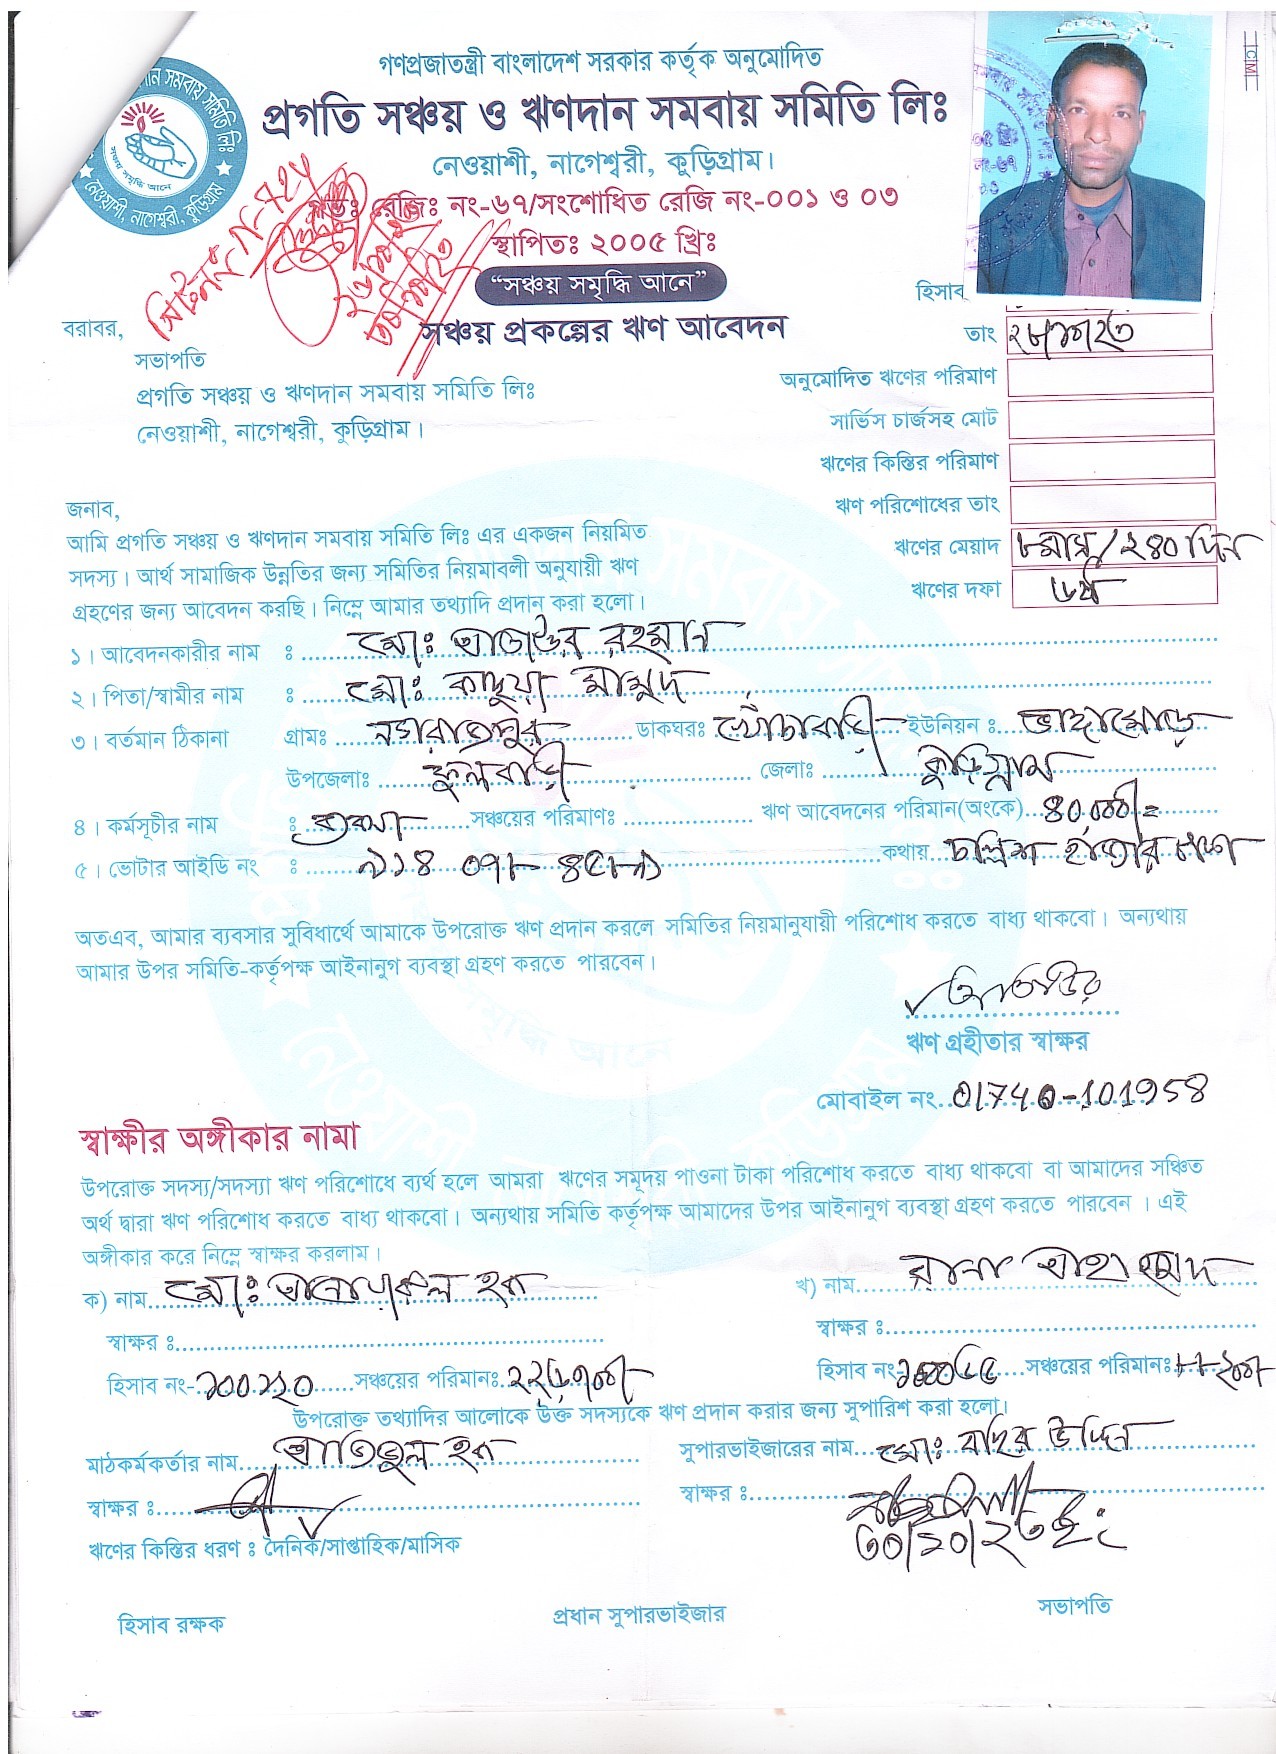 গণপ্রজাতন্ত্রী বাংলাদেশ সরকার কর্তৃক অনুমোদিত
প্রগতি সঞ্চয় ও ঋণদান সমবায় সমিতি লিঃ
নেওয়াশী, নাগেশ্বরী, কুড়িগ্রাম।
গভঃ রেজিঃ নং-৬৭/সংশোধিত রেজি নং-০০১ ও ০৩
স্থাপিতঃ ২০০৫ খ্রিঃ
“সঞ্চয় সমৃদ্ধি আনে”
হিসাব
সঞ্চয় প্রকল্পের ঋণ আবেদন
তাং
বরাবর,
সভাপতি
প্রগতি সঞ্চয় ও ঋণদান সমবায় সমিতি লিঃ
নেওয়াশী, নাগেশ্বরী, কুড়িগ্রাম।
অনুমোদিত ঋণের পরিমাণ
সার্ভিস চার্জসহ মোট
ঋণের কিস্তির পরিমাণ
ঋণ পরিশোধের তাং
ঋণের মেয়াদ ৮ মাস/২৪০ দিন
ঋণের দফা
জনাব,
আমি প্রগতি সঞ্চয় ও ঋণদান সমবায় সমিতি লিঃ এর একজন নিয়মিত
সদস্য। আর্থ সামাজিক উন্নতির জন্য সমিতির নিয়মাবলী অনুযায়ী ঋণ
গ্রহণের জন্য আবেদন করছি। নিম্নে আমার তথ্যাদি প্রদান করা হলো।
১। আবেদনকারীর নাম : মোঃ আতাউর রহমান
২। পিতা/স্বামীর নাম : মোঃ মামুদ
৩। বর্তমান ঠিকানা গ্রামঃ নগরাজপুর ডাকঘরঃ খোঁচাবাড়ী ইউনিয়ন : ভাঙ্গামোড়
উপজেলাঃ ফুলবাড়ী জেলাঃ কুড়িগ্রাম
৪। কর্মসূচীর নাম : ব্যবসা সঞ্চয়ের পরিমাণঃ ঋণ আবেদনের পরিমান(অংকে) ৪০,০০০/=
৫। ভোটার আইডি নং : কথায় চল্লিশ হাজার
অতএব, আমার ব্যবসার সুবিধার্থে আমাকে উপরোক্ত ঋণ প্রদান করলে সমিতির নিয়মানুযায়ী পরিশোধ করতে বাধ্য থাকবো। অন্যথায়
আমার উপর সমিতি-কর্তৃপক্ষ আইনানুগ ব্যবস্থা গ্রহণ করতে পারবেন।
আতাউর
ঋণ গ্রহীতার স্বাক্ষর
মোবাইল নং 01740-101958
স্বাক্ষীর অঙ্গীকার নামা
উপরোক্ত সদস্য/সদস্যা ঋণ পরিশোধে ব্যর্থ হলে আমরা ঋণের সমূদয় পাওনা টাকা পরিশোধ করতে বাধ্য থাকবো বা আমাদের সঞ্চিত
অর্থ দ্বারা ঋণ পরিশোধ করতে বাধ্য থাকবো। অন্যথায় সমিতি কর্তৃপক্ষ আমাদের উপর আইনানুগ ব্যবস্থা গ্রহণ করতে পারবেন । এই
অঙ্গীকার করে নিম্নে স্বাক্ষর করলাম।
ক) নাম মোঃ হক
খ) নাম রানা আহাম্মেদ
স্বাক্ষর :
স্বাক্ষর :
হিসাব নং- ১০০১২০ সঞ্চয়ের পরিমানঃ
হিসাব নং- সঞ্চয়ের পরিমানঃ
উপরোক্ত তথ্যাদির আলোকে উক্ত সদস্যকে ঋণ প্রদান করার জন্য সুপারিশ করা হলো।
মাঠকর্মকর্তার নাম হক
সুপারভাইজারের নাম মোঃ উদ্দিন
স্বাক্ষর :
স্বাক্ষর :
৩০/১০/২৩ ইং
ঋণের কিস্তির ধরণ : দৈনিক/সাপ্তাহিক/মাসিক
হিসাব রক্ষক
প্রধান সুপারভাইজার
সভাপতি